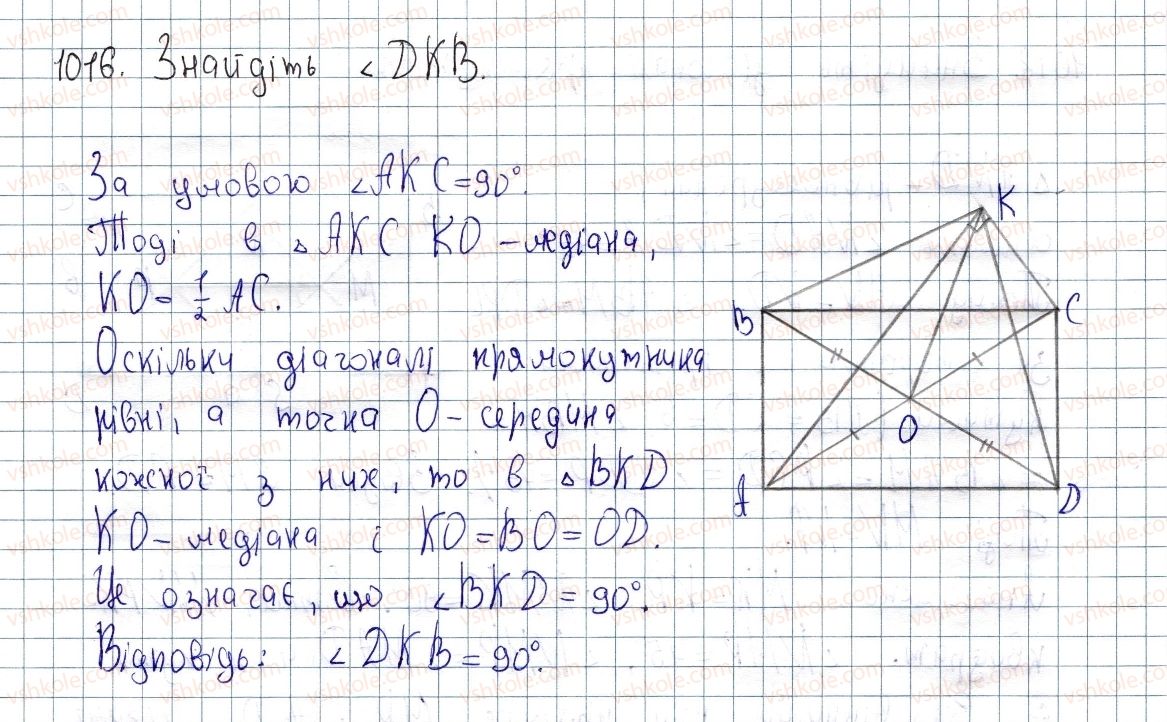 1016. Знайдіть ∠DKB.
За умовою ∠AKC=90°.
Тоді в △AKC KO – медіана,
KO = 1/2 AC.
Оскільки діагоналі прямокутника
рівні, а точка O – середина
кожної з них, то в △BKD
KO – медіана і KO = BO = OD.
Це означає, що ∠BKD = 90°.
Відповідь: ∠DKB = 90°.
K
B
C
O
A
D
vshkole.com